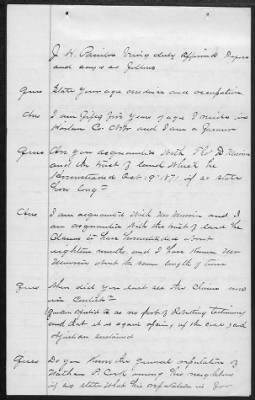 J. H. Banks being duly affirmed deposes
and says as follows
Ques State your age residence and occupation
Ans I am fifty five years of age I reside in
Harlan Co. Nebr and I am a Farmer
Ques Are you acquainted with
and the tract of land which he
Homesteaded Oct. 19" 1871 if so state
how long
Ans I am acquainted with Mr and I
am acquainted with the tract of land he
Claims to have homesteaded about
eighteen months and I have known Mr
about the same length of time
Ques When did you last see the Claim now
in Contest
objected to as no part of Rebutting testimony
and that it is again opening up the case and
objection sustained
Ques Do you Know the general reputation of
Nathan P. Cook among his neighbors
if so state what his reputation is for